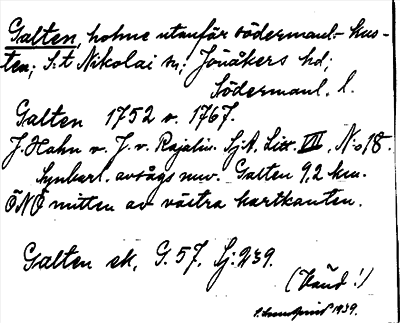 Galten, holme utanför södermanl.- kus-
ten; S:t Nikolai sn; Jönåkers hd;
Södermanl. l.
Galten 1752 o. 1767.
J. Hahn o. J. v. Rajalin. Sj.A. Litt. VII, N:o 18.
Synberl. avsågs nuv. Galten 9,2 km.
ÖNÖ mitten av västra kartkanten.
Galten sk. G. 57, Sj: 239.
(Vänd!)
1939.